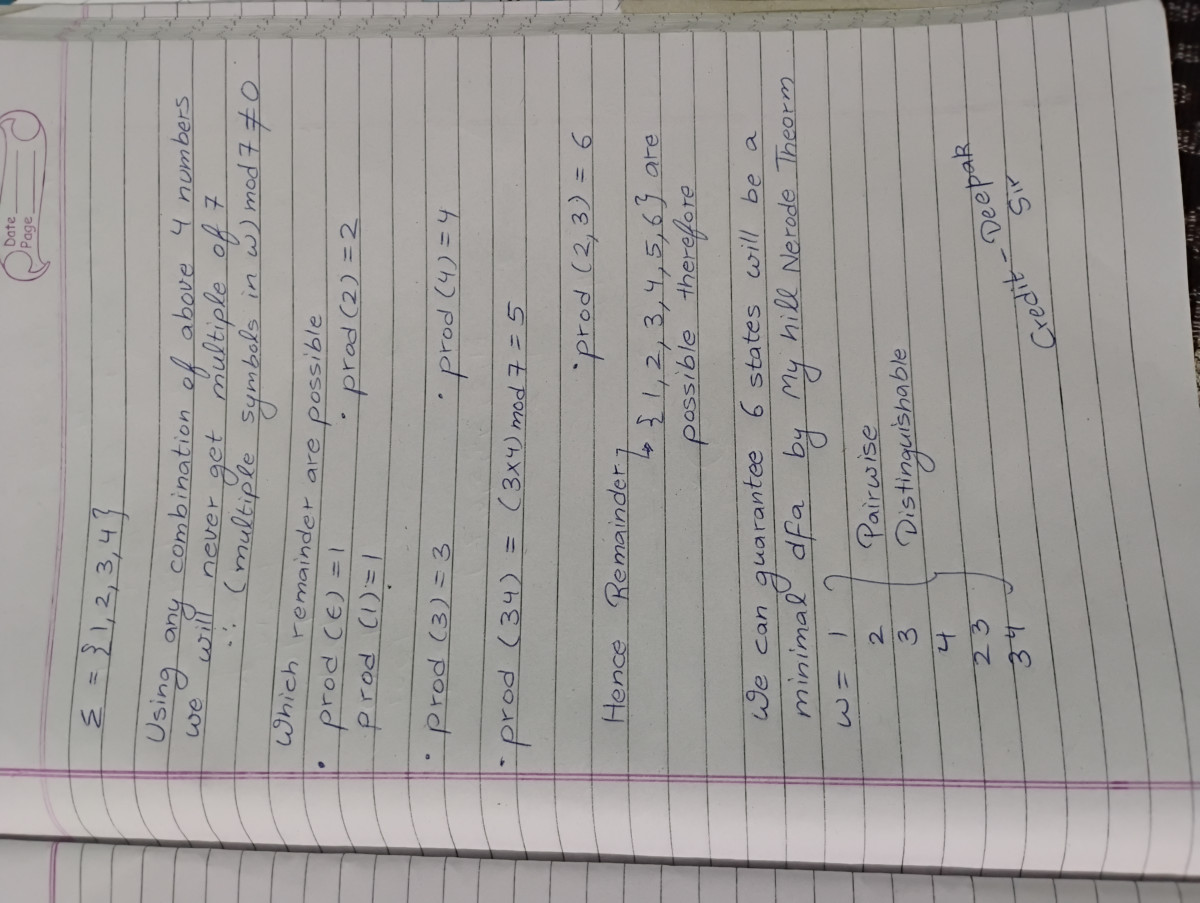 Date
Page
Σ = {1, 2, 3, 4}
Using any combination of above 4 numbers
we will never get multiple of 7
∴ (multiple symbols in w) mod 7 ≠ 0
Which remainder are possible
• prod (ϵ) = 1 • prod (2) = 2
prod (1) = 1
• prod (3) = 3 • prod (4) = 4
• prod (34) = (3x4) mod 7 = 5
• prod (2,3) = 6
Hence Remainder
↳ {1, 2, 3, 4, 5, 6} are
possible therefore
We can guarantee 6 states will be a
minimal dfa by My hill Nerode Theorm
w = 1
2 Pairwise
3 Distinguishable
4
23
34
Credit - Deepak
Sir